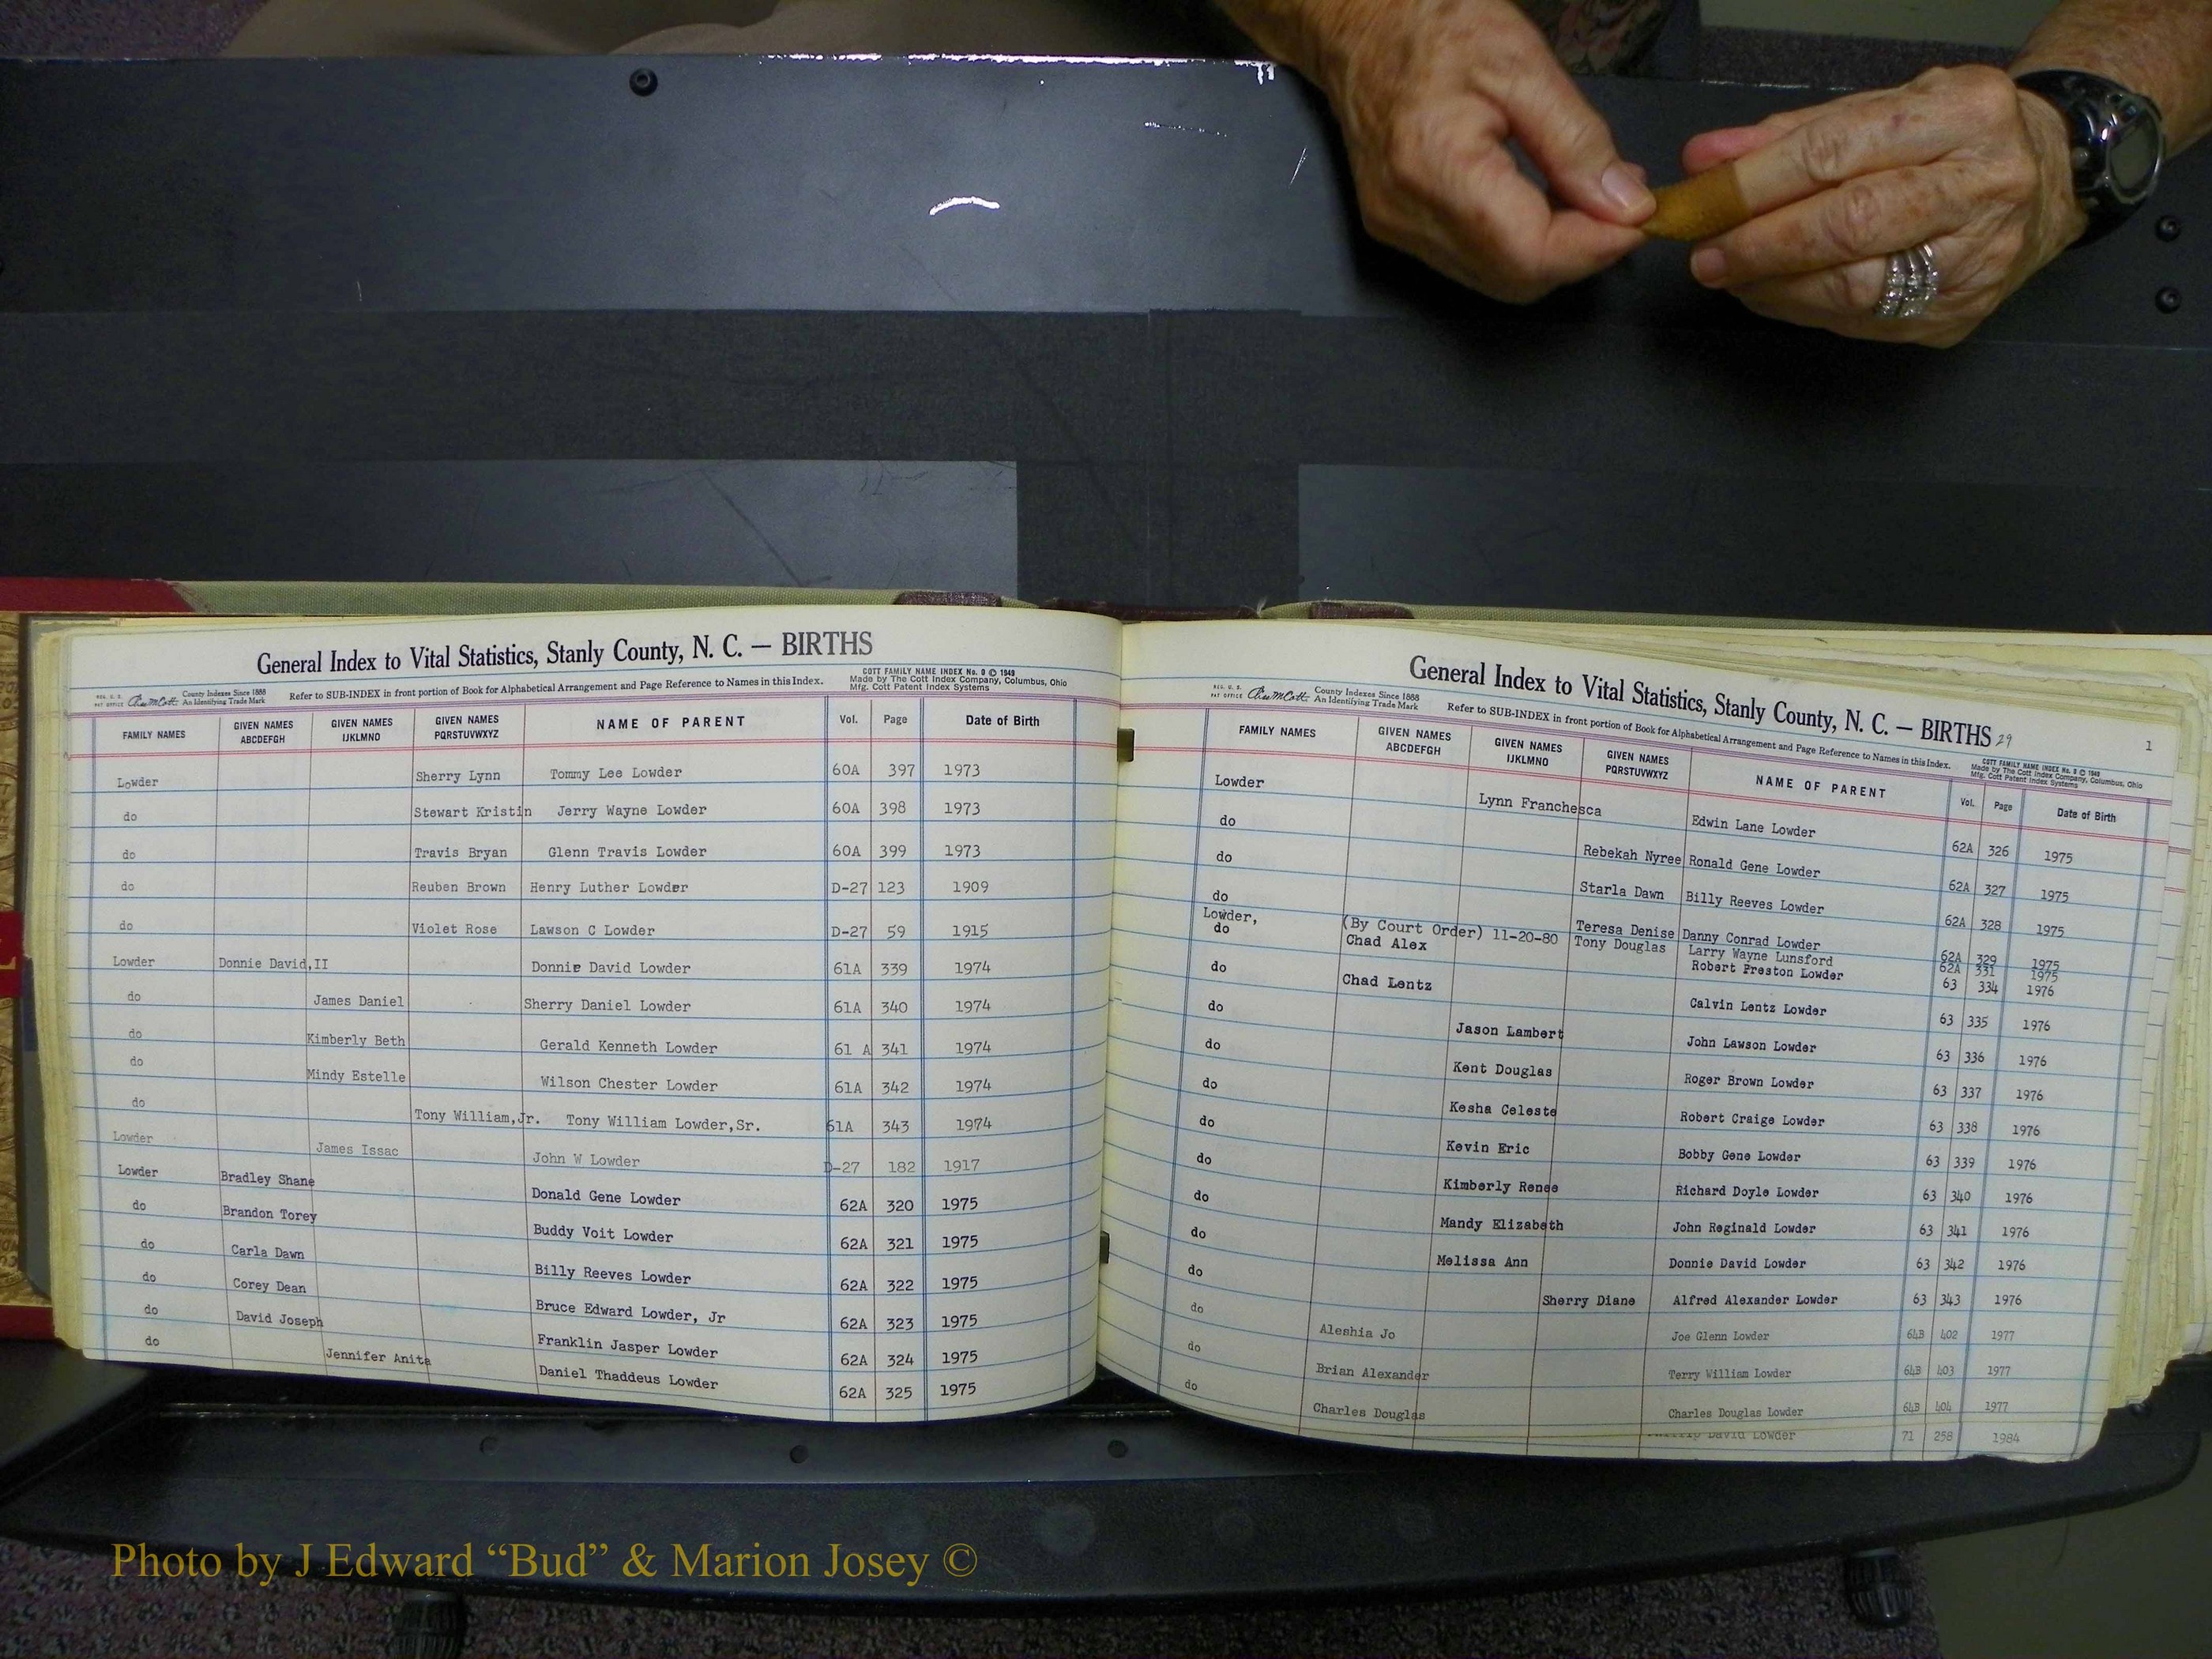 General Index to Vital Statistics, Stanly County, N. C. — BIRTHS
REG. U. S. PAT OFFICE County Indexes Since 1888 An Identifying Trade Mark Refer to SUB-INDEX in front portion of Book for Alphabetical Arrangement and Page Reference to Names in this Index. COTT FAMILY NAME INDEX No. 9 © 1949 Made by The Cott Index Company, Columbus, Ohio Mfg. Cott Patent Index Systems
FAMILY NAMES GIVEN NAMES ABCDEFGH GIVEN NAMES IJKLMNO GIVEN NAMES PQRSTUVWXYZ NAME OF PARENT Vol. Page Date of Birth
Lowder Sherry Lynn Tommy Lee Lowder 60A 397 1973
do Stewart Kristin Jerry Wayne Lowder 60A 398 1973
do Travis Bryan Glenn Travis Lowder 60A 399 1973
do Reuben Brown Henry Luther Lowder D-27 123 1909
do Violet Rose Lawson C Lowder D-27 59 1915
Lowder Donnie David,II Donnie David Lowder 61A 339 1974
do James Daniel Sherry Daniel Lowder 61A 340 1974
do Kimberly Beth Gerald Kenneth Lowder 61 A 341 1974
do Mindy Estelle Wilson Chester Lowder 61A 342 1974
do Tony William,Jr. Tony William Lowder,Sr. 61A 343 1974
Lowder James Issac John W Lowder D-27 182 1917
Lowder Bradley Shane Donald Gene Lowder 62A 320 1975
do Brandon Torey Buddy Voit Lowder 62A 321 1975
do Carla Dawn Billy Reeves Lowder 62A 322 1975
do Corey Dean Bruce Edward Lowder, Jr 62A 323 1975
do David Joseph Franklin Jasper Lowder 62A 324 1975
do Jennifer Anita Daniel Thaddeus Lowder 62A 325 1975
General Index to Vital Statistics, Stanly County, N. C. — BIRTHS 29 1
REG. U. S. PAT OFFICE County Indexes Since 1888 An Identifying Trade Mark Refer to SUB-INDEX in front portion of Book for Alphabetical Arrangement and Page Reference to Names in this Index. COTT FAMILY NAME INDEX No. 9 © 1949 Made by The Cott Index Company, Columbus, Ohio Mfg. Cott Patent Index Systems
FAMILY NAMES GIVEN NAMES ABCDEFGH GIVEN NAMES IJKLMNO GIVEN NAMES PQRSTUVWXYZ NAME OF PARENT Vol. Page Date of Birth
Lowder Lynn Franchesca Edwin Lane Lowder 62A 326 1975
do Rebekah Nyree Ronald Gene Lowder 62A 327 1975
do Starla Dawn Billy Reeves Lowder 62A 328 1975
do Teresa Denise Danny Conrad Lowder 62A 329 1975
Lowder, (By Court Order) 11-20-80 Tony Douglas Larry Wayne Lunsford 62A 331 1975
do Chad Alex Robert Preston Lowder 63 334 1976
do Chad Lentz Calvin Lentz Lowder 63 335 1976
do Jason Lambert John Lawson Lowder 63 336 1976
do Kent Douglas Roger Brown Lowder 63 337 1976
do Kesha Celeste Robert Craige Lowder 63 338 1976
do Kevin Eric Bobby Gene Lowder 63 339 1976
do Kimberly Renee Richard Doyle Lowder 63 340 1976
do Mandy Elizabeth John Reginald Lowder 63 341 1976
do Melissa Ann Donnie David Lowder 63 342 1976
do Sherry Diane Alfred Alexander Lowder 63 343 1976
do Aleshia Jo Joe Glenn Lowder 64B 402 1977
do Brian Alexander Terry William Lowder 64B 403 1977
do Charles Douglas Charles Douglas Lowder 64B 404 1977
David Lowder 71 258 1984
Photo by J Edward “Bud” & Marion Josey ©